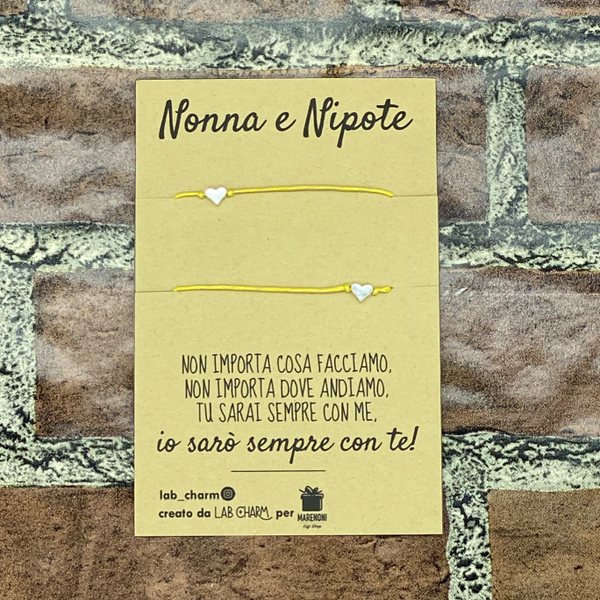 Nonna e Nipote
NON IMPORTA COSA FACCIAMO,
NON IMPORTA DOVE ANDIAMO,
TU SARAI SEMPRE CON ME,
io sarò sempre con te!
lab_charm
creato da LAB CHARM per
MARENONI
Gift Shop